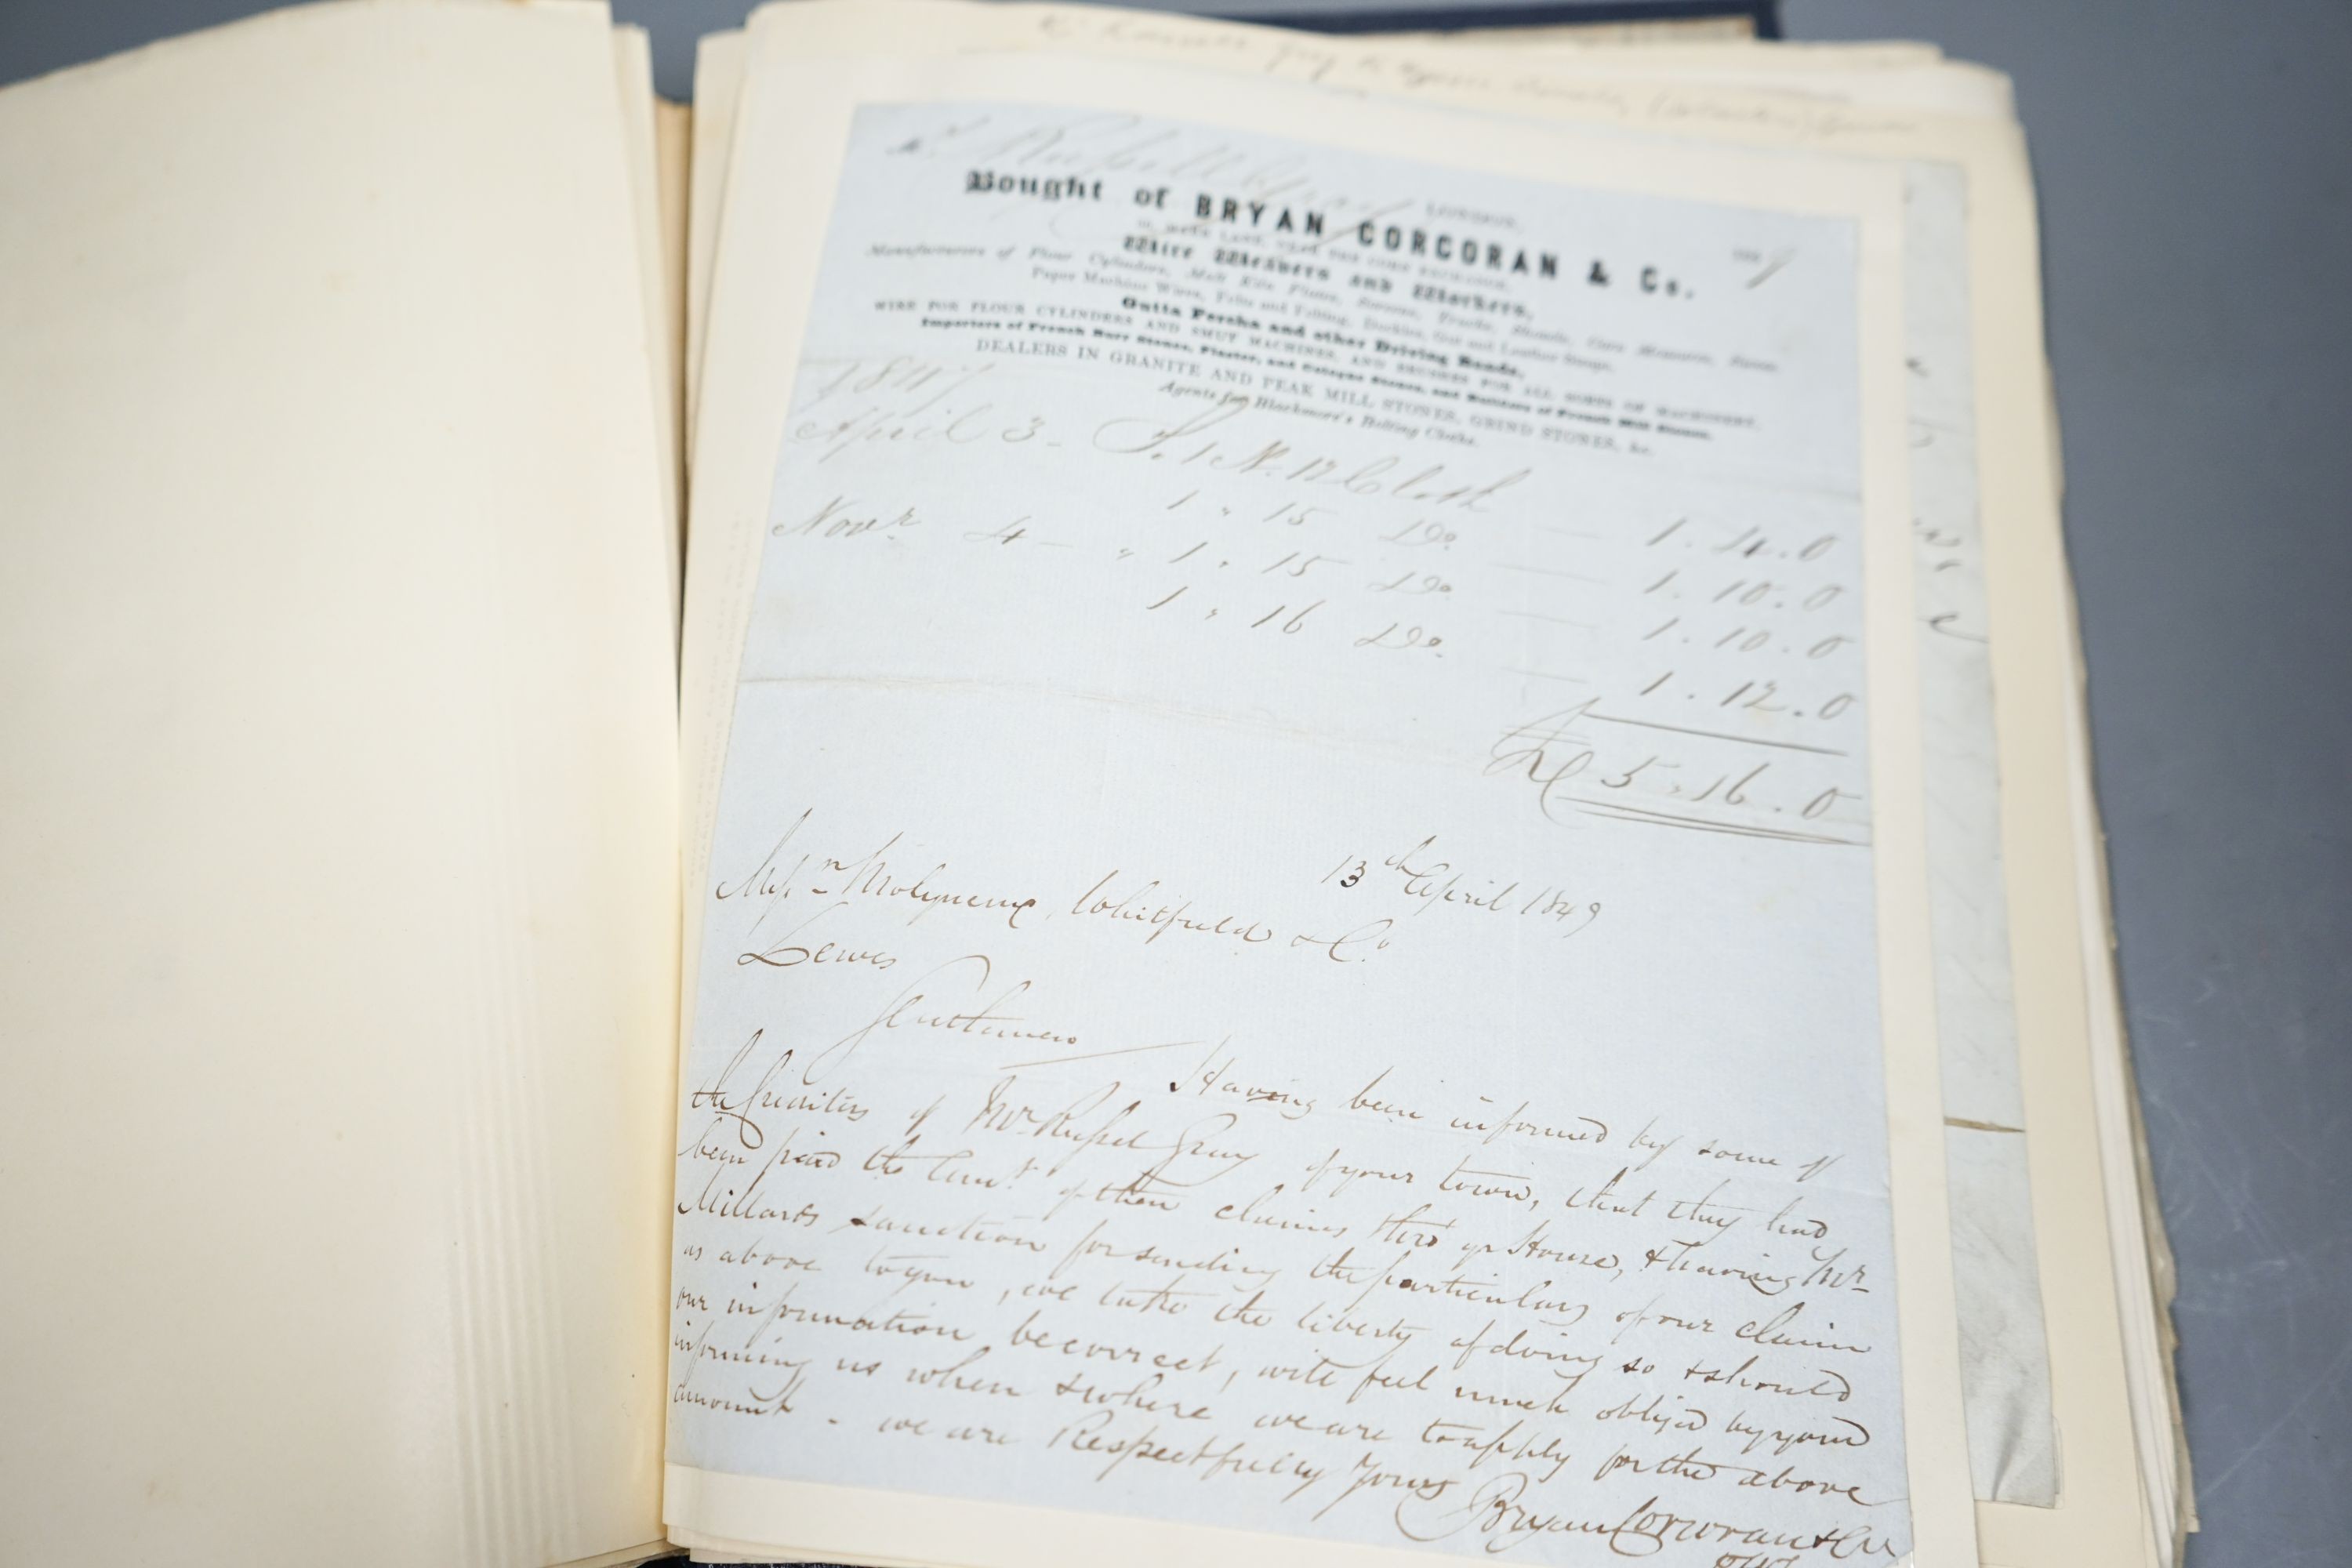 Mr Russell Gray
LONDON,
Bought of BRYAN CORCORAN & Co.
MARK LANE, NEAR THE CORN EXCHANGE,
Wire Weavers and Workers,
Manufacturers of Flour Cylinders, Malt Kiln Plates, Screens, Trucks, Shovels, Corn Measures, Sieves,
Paper Machine Wires, Felts and Felting, Buckles, Gut and Leather Straps,
Gutta Percha and other Driving Bands,
WIRE FOR FLOUR CYLINDERS AND SMUT MACHINES, AND BRUSHES FOR ALL SORTS OF MACHINERY.
Importers of French Burr Stones, Plaster, and Cologne Stones, and Builders of French Mill Stones.
DEALERS IN GRANITE AND PEAK MILL STONES, GRIND STONES, &c.
Agents for Blackmore's Bolting Cloths.
1847
April 3 - 1 N. 12 Cloth 1 . 4 . 0
1 " 15 Do. 1 . 10 . 0
Novr. 4 - " 1 " 15 Do. 1 . 10 . 0
1 " 16 Do. 1 . 12 . 0
£ 5 . 16 . 0
13th April 1849
Messrs Molyneux, Whitfield & Co.
Lewes
Gentlemen
Having been informed by some of
the Creditors of Mr Russel Gray of your town, that they had
been paid the Amt. of their claims thro' yr House, & having Mr
Millards sanction for sending the particulars of our claim
as above to you, we take the liberty of doing so & should
our information be correct, will feel much obliged by your
informing us when & where we are to apply for the above
amount - we are Respectfully Yours
Bryan Corcoran & Co